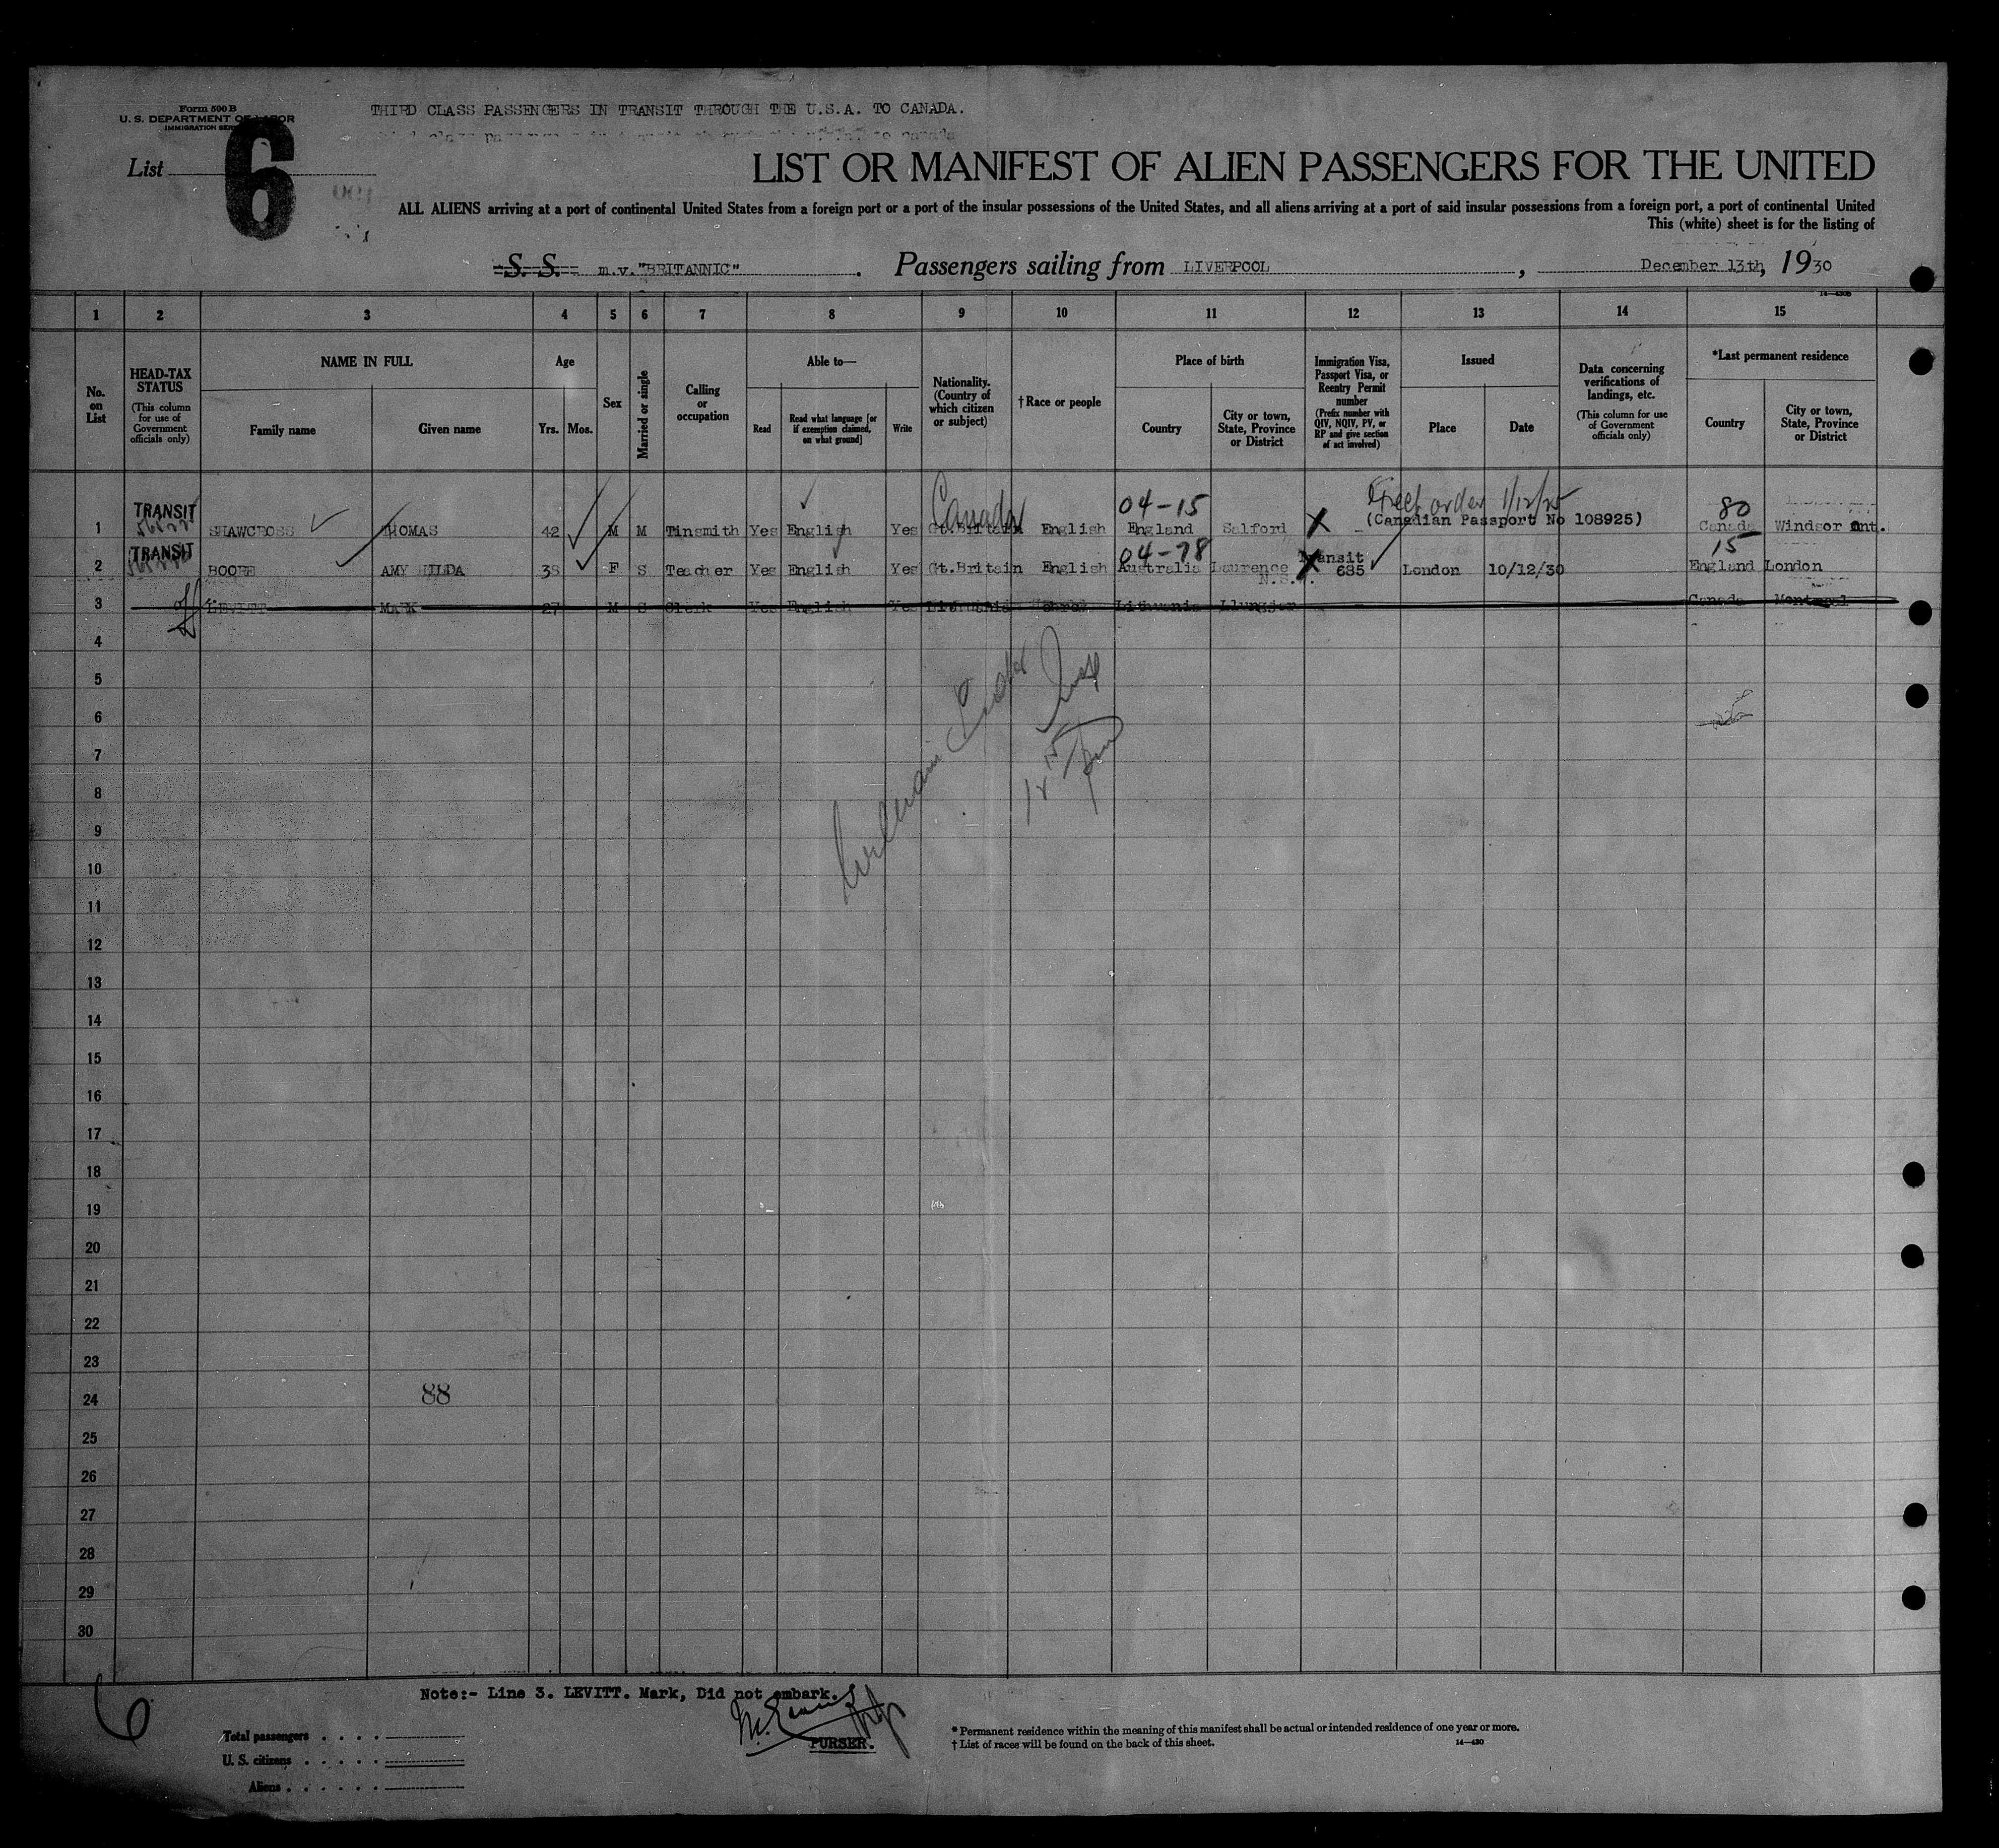 Form 500 B
U. S. DEPARTMENT OF LABOR
IMMIGRATION SERVICE
THIRD CLASS PASSENGERS IN TRANSIT THROUGH THE U.S.A. TO CANADA.
List 6
LIST OR MANIFEST OF ALIEN PASSENGERS FOR THE UNITED
ALL ALIENS arriving at a port of continental United States from a foreign port or a port of the insular possessions of the United States, and all aliens arriving at a port of said insular possessions from a foreign port, a port of continental United
This (white) sheet is for the listing of
S. S. m.v."BRITANNIC". Passengers sailing from LIVERPOOL, December 13th, 1930
14—430B
1 2 3 4 5 6 7 8 9 10 11 12 13 14 15
No. on List
HEAD-TAX STATUS (This column for use of Government officials only)
NAME IN FULL
Family name
Given name
Age
Yrs. Mos.
Sex
Married or single
Calling or occupation
Able to—
Read
Read what language [or if exemption claimed, on what ground]
Write
Nationality. (Country of which citizen or subject)
†Race or people
Place of birth
Country
City or town, State, Province or District
Immigration Visa, Passport Visa, or Reentry Permit number (Prefix number with QIV, NQIV, PV, or RP and give section of act involved)
Issued
Place
Date
Data concerning verifications of landings, etc. (This column for use of Government officials only)
*Last permanent residence
Country
City or town, State, Province or District
Canada 04-15 order 1/12/25 80
1 TRANSIT SHAWCROSS THOMAS 42 M M Tinsmith Yes English Yes Gt.Britain English England Salford X (Canadian Passport No 108925) Canada Windsor Ont.
04-78 15
2 TRANSIT BOORE AMY HILDA 38 F S Teacher Yes English Yes Gt.Britain English Australia Laurence N.S.W. X Transit 685 London 10/12/30 England London
3 LEVITT MARK 27 M S Clerk Yes English Yes Lithuania Hebrew Lithuania Canada Montreal
4
5
6
7
8
9
10
11
12
13
14
15
16
17
18
19
20
21
22
23
24 88
25
26
27
28
29
30
6
Note:- Line 3. LEVITT. Mark, Did not embark.
PURSER.
Total passengers
U. S. citizens
Aliens
* Permanent residence within the meaning of this manifest shall be actual or intended residence of one year or more.
† List of races will be found on the back of this sheet.
14—430